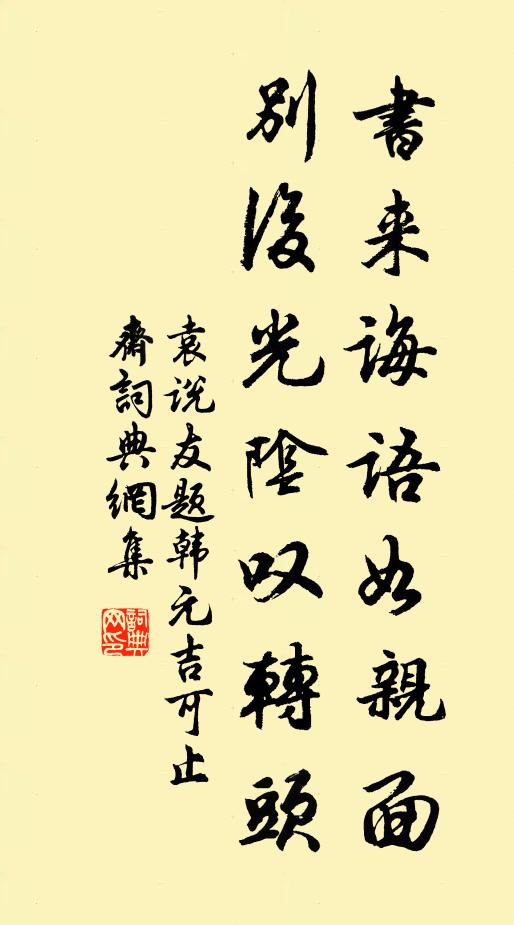 書来誨語如親面
別後光陰叹轉頭
袁说友题韩元吉可止
齋詞典網集
詞典
网印